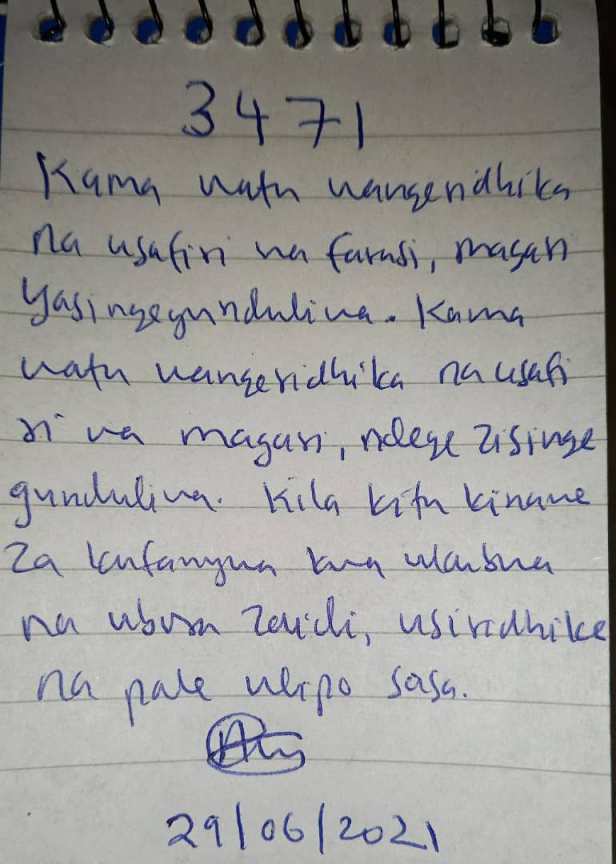 3471
Kama watu wangeridhika
na usafiri wa farasi, magari
yasingegunduliwa. Kama
watu wangeridhika na usafi
ri wa magari, ndege zisinge
gunduliwa. Kila kitu kinawe
za kufanywa kwa ukubwa
na ubora zaidi, usiridhike
na pale ulipo sasa.
29/06/2021